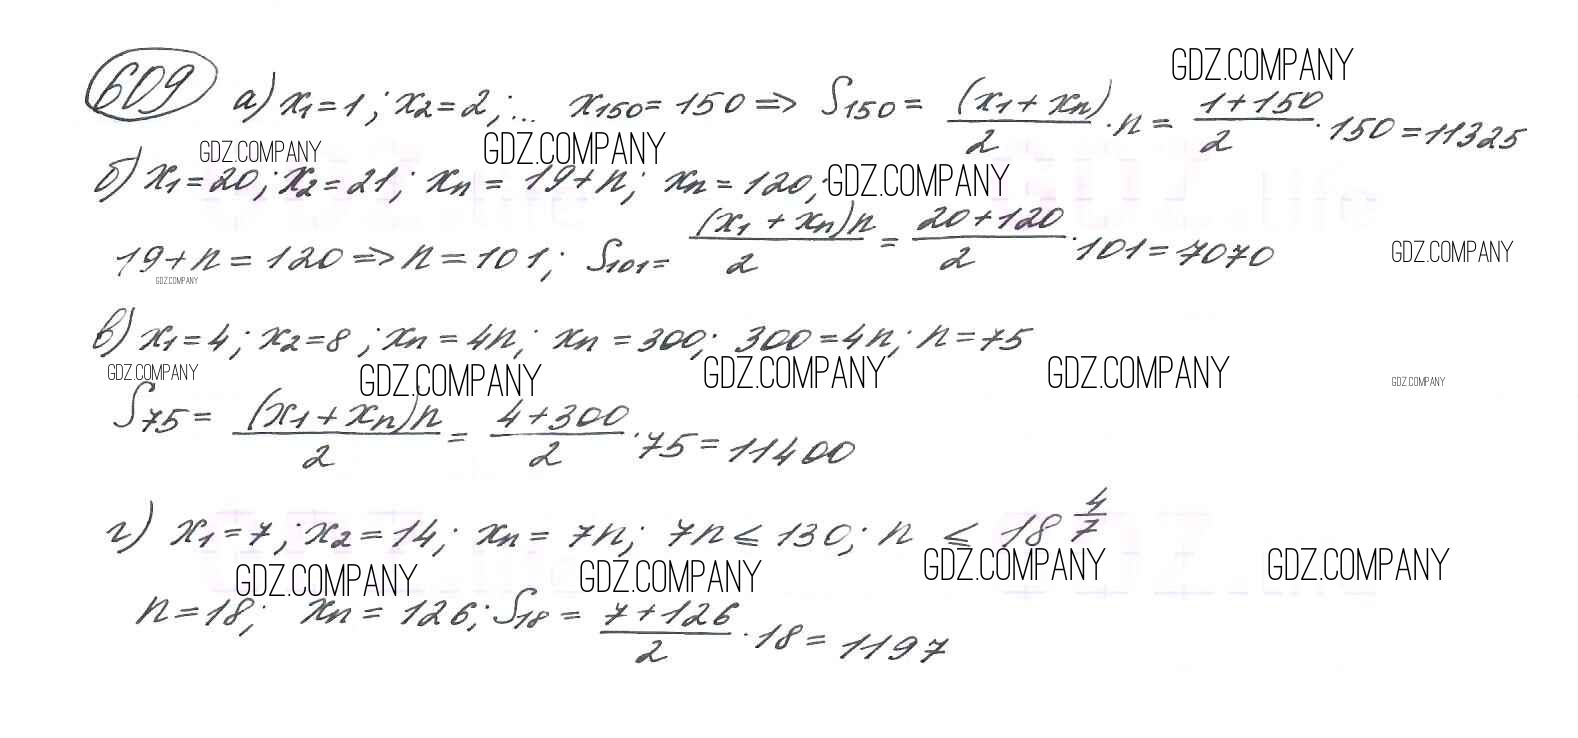 GDZ.COMPANY
609 а) x₁=1; x₂=2; ... x₁₅₀=150 => S₁₅₀ = (x₁+xₙ)/2 · n = (1+150)/2 · 150 = 11325
GDZ.COMPANY GDZ.COMPANY
б) x₁=20; x₂=21; xₙ = 19+n; xₙ = 120; GDZ.COMPANY
19+n = 120 => n = 101; S₁₀₁ = (x₁+xₙ)n/2 = (20+120)/2 · 101 = 7070 GDZ.COMPANY
GDZ.COMPANY
в) x₁=4; x₂=8; xₙ = 4n; xₙ = 300; 300=4n; n=75
GDZ.COMPANY GDZ.COMPANY GDZ.COMPANY GDZ.COMPANY GDZ.COMPANY
S₇₅ = (x₁+xₙ)n/2 = (4+300)/2 · 75 = 11400
г) x₁=7; x₂=14; xₙ = 7n; 7n ≤ 130; n ≤ 18 4/7
GDZ.COMPANY GDZ.COMPANY GDZ.COMPANY GDZ.COMPANY
n=18; xₙ = 126; S₁₈ = (7+126)/2 · 18 = 1197